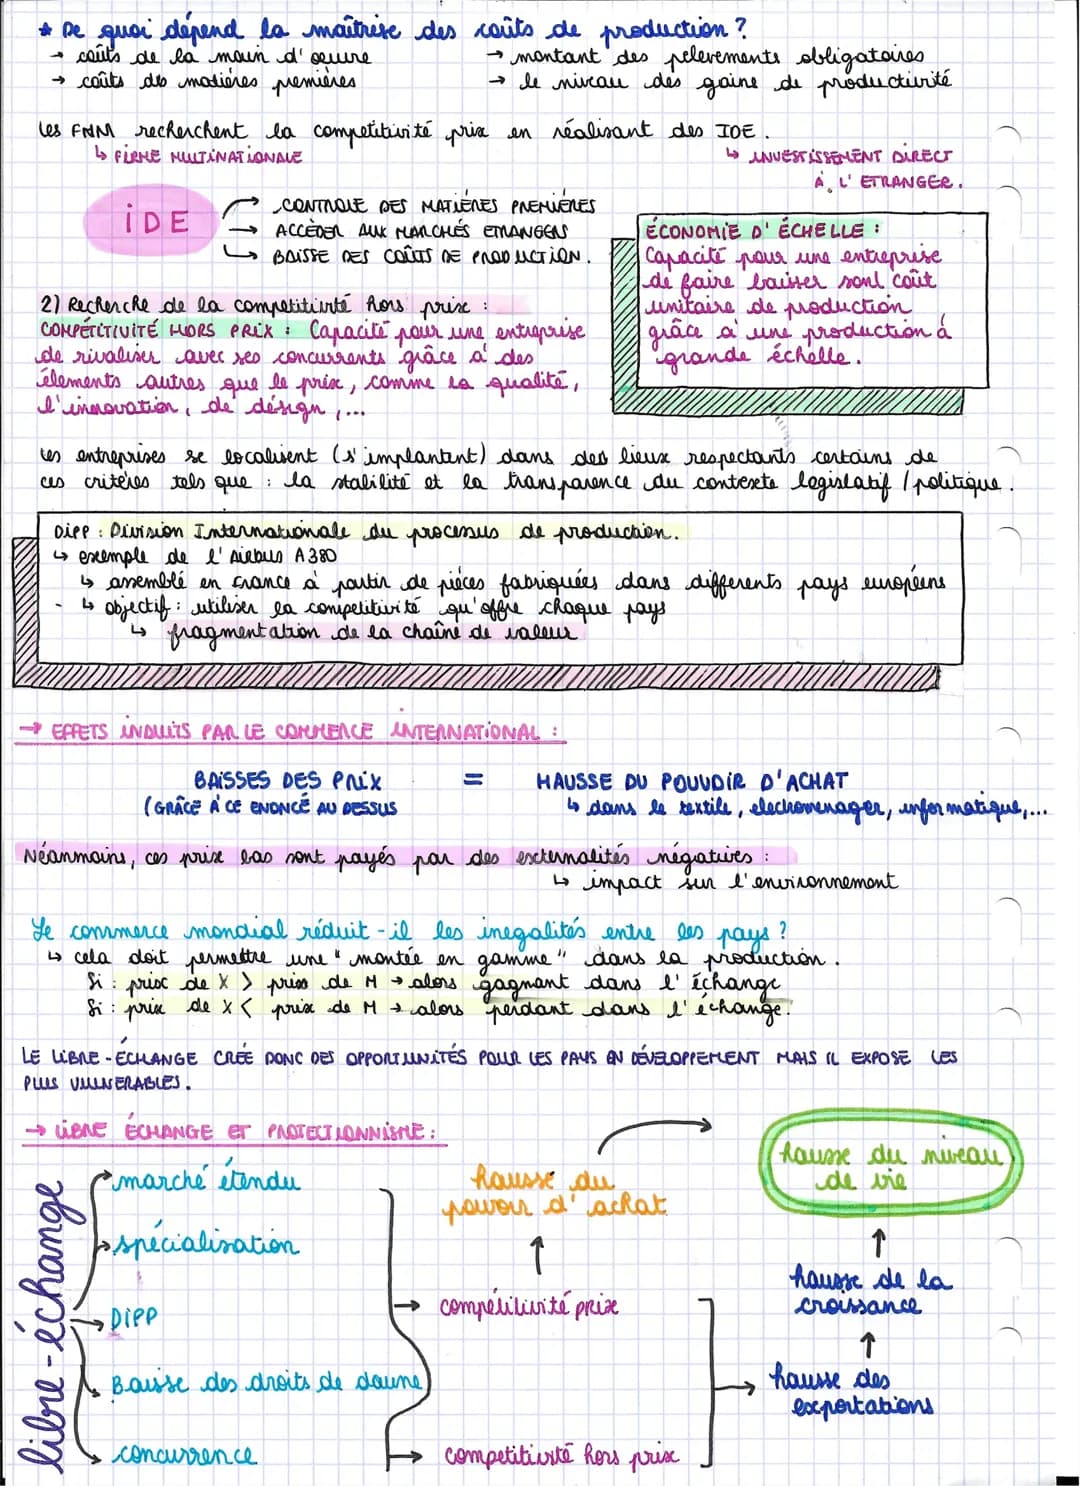 * De quoi dépend la maîtrise des coûts de production ?
→ coûts de la main d'œuvre
→ coûts des matières premières
→ montant des pelevements obligatoires
→ le niveau des gains de productivité
Les FMN recherchent la competitivité prix en réalisant des IDE.
↳ FIRME MULTINATIONALE
↳ INVESTISSEMENT DIRECT
À L'ETRANGER.
IDE
→ CONTROLE DES MATIÈRES PREMIÈRES
→ ACCÈDER AUX MARCHÉS ETRANGERS
↳ BAISSE DES COÛTS DE PRODUCTION.
ÉCONOMIE D'ÉCHELLE :
Capacité pour une entreprise
de faire baisser sont coût
unitaire de production
grâce à une production à
grande échelle.
2) Recherche de la competitivité hors prix :
COMPÉTITIVITÉ HORS PRIX : Capacité pour une entreprise
de rivaliser avec ses concurrents grâce à des
élements autres que le prix, comme la qualité,
l'innovation, de désign,...
Les entreprises se localisent (s'implantent) dans des lieux respectants certains de
ces critères tels que : la stabilité et la transparence du contexte legislatif / politique.
DiPP : Division Internationale du processus de production.
↳ exemple de l'Airbus A380
↳ assemblé en France à partir de pièces fabriquées dans differents pays européens
- ↳ objectif : utiliser la competitivité qu'offre chaque pays
↳ fragmentation de la chaîne de valeur
→ EFFETS INDUITS PAR LE COMMERCE INTERNATIONAL :
BAISSES DES PRIX = HAUSSE DU POUVOIR D'ACHAT
(GRÂCE À CE ENONCÉ AU DESSUS
↳ dans le textile, electromenager, informatique,...
Néanmoins, ces prix bas sont payés par des externalités négatives :
↳ impact sur l'environnement
Le commerce mondial réduit-il les inegalités entre les pays ?
↳ cela doit permettre une "montée en gamme" dans la production.
Si : prix de X > prix de M → alors gagnant dans l'échange
Si : prix de X < prix de M → alors perdant dans l'échange.
LE LIBRE-ÉCHANGE CRÉE DONC DES OPPORTUNITÉS POUR LES PAYS EN DÉVELOPPEMENT MAIS IL EXPOSE LES
PLUS VULNERABLES.
→ LIBRE ÉCHANGE ET PROTECTIONNISME :
libre-échange
marché étendu
spécialisation
DIPP
Baisse des droits de doune
concurrence
hausse du
pouvoir d'achat
↑
→ compétitivité prix
→ competitivité hors prix
hausse du niveau
de vie
↑
hausse de la
croissance
↑
→ hausse des
exportations